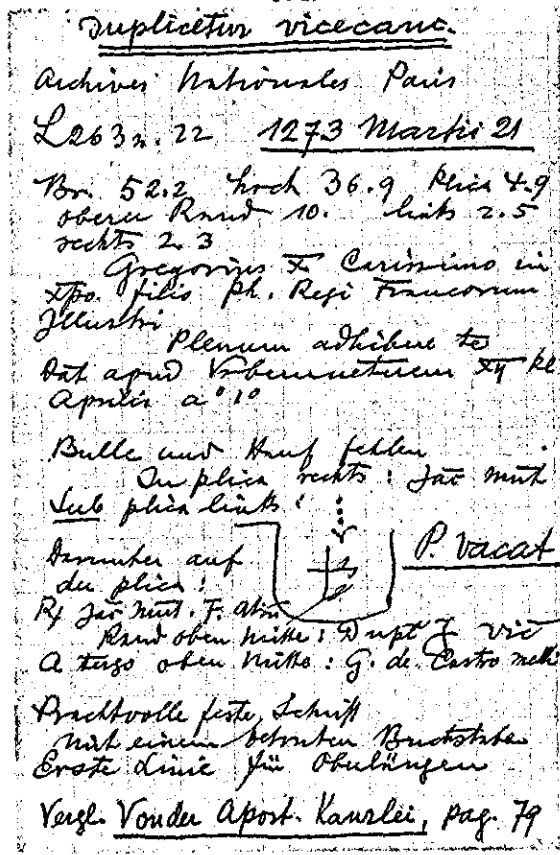 Duplicetur vicecanc.
Archives Nationales Paris
L 263 n. 22 1273 Martii 21
Br. 52.2 hoch 36.9 Plica 4.9
oberer Rand 10. links 2.5
rechts 2.3
Gregorius X Carissimo in
Xpo. filio Ph. Regi Francorum
Illustri
Plenum adhibere te
Dat apud Urbemveterem XII kl
Aprilis a° 1°
Bulle und Hanf fehlen
In plica rechts: Jac mut
Sub plica links:
P. vacat
Darunter auf
der plica:
Rx Jac mut.
Rand oben Mitte: Dupt J vic
A tergo oben Mitte: G. de Castro
Prachtvolle feste Schrift
mit einem betonten Buchstaben
Erste Linie für Oberlängen
Vergl. Von der Apost. Kanzlei, pag. 79